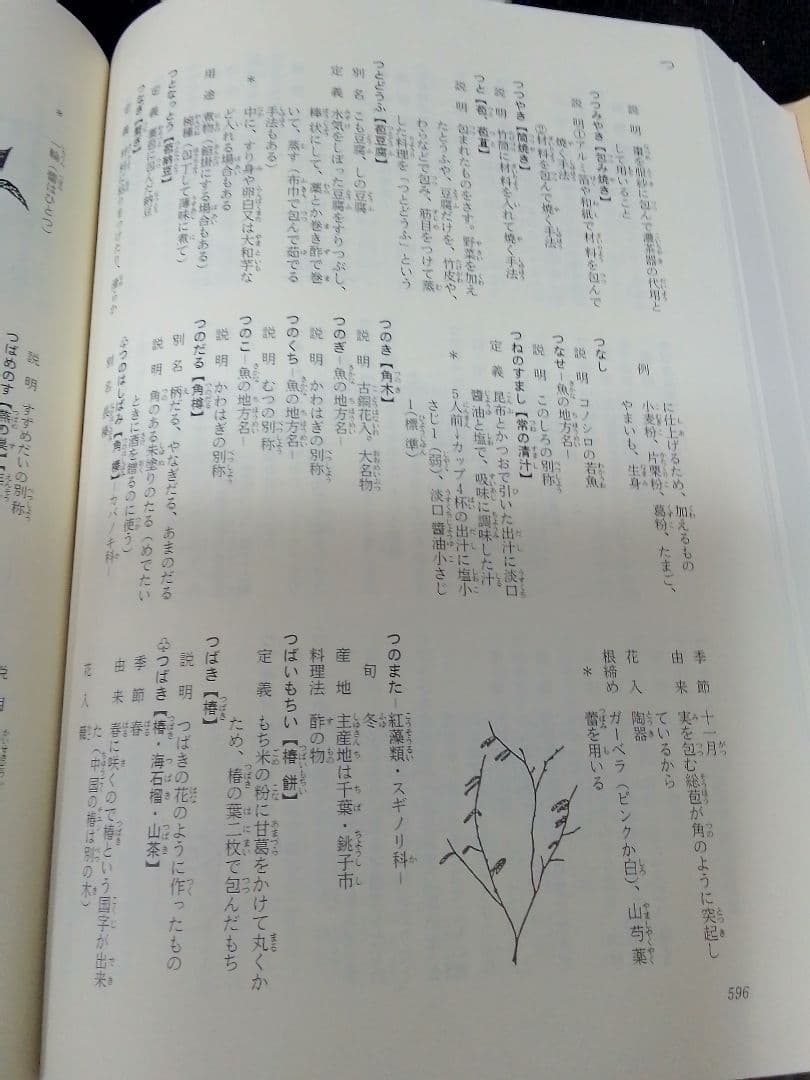 つ
説明 棗を服紗に包んで濃茶器の代用と
して用いること
つつみやき【包み焼き】
説明①アルミ箔や和紙で材料を包んで
焼く手法
②材料を包んで焼く手法
つつやき【筒焼き】
説明 竹筒に材料を入れて焼く手法
つと【苞、苞苴】
説明 包まれたものをさす。野菜を加え
たとうふや、豆腐だけを、竹皮や、
わらなどで包み、筋目をつけて蒸
した料理を「つとどうふ」という
つとどうふ【苞豆腐】
別名 こも豆腐、しの豆腐
定義 水気をしぼった豆腐をすりつぶし、
棒状にして、藁とか巻き酢で巻
いて、蒸す(布巾で包んで茹でる
手法もある)
* 中に、すり身や卵白又は大和芋な
ど入れる場合もある
用途 煮物(餡掛にする場合もある)
椀種(包丁して薄味に煮て)
つとなっとう【苞納豆】
定義 藁苞に包んだ納豆
つなぎ【繋ぎ】
例 に仕上げるため、加えるもの
小麦粉、片栗粉、葛粉、たまご、
やまいも、生身
つなし
説明 コノシロの若魚
つなせ―魚の地方名―
説明 このしろの別称
つねのすまし【常の清汁】
定義 昆布とかつおで引いた出汁に淡口
醤油と塩で、吸味に調味した汁
* 5人前→カップ4杯の出汁に塩小
さじ1(弱)、淡口醬油小さじ
1(標準)
つのき【角木】
説明 古銅花入。大名物
つのぎ―魚の地方名―
説明 かわはぎの別称
つのくち―魚の地方名―
説明 むつの別称
つのこ―魚の地方名―
説明 かわはぎの別称
つのだる【角樽】
別名 柄だる、やなぎだる、あまのだる
説明 角のある朱塗りのたる(めでたい
ときに酒を贈るのに使う)
つのはしばみ【角榛】カバノキ科―
季節 十一月
由来 実を包む総苞が角のように突起し
ているから
花入 陶器
根締め ガーベラ(ピンクか白)、山芍薬
* 蕾を用いる
つのまた―紅藻類・スギノリ科―
旬 冬
産地 主産地は千葉・銚子市
料理法 酢の物
つばいもちい【椿餅】
定義 もち米の粉に甘葛をかけて丸くか
ため、椿の葉二枚で包んだもち
つばき【椿】
説明 つばきの花のように作ったもの
つばき【椿・海石榴・山茶】
季節 春
由来 春に咲くので椿という国字が出来
た(中国の椿は別の木)
花入
596
説明 すずめだいの別称
つばめのす